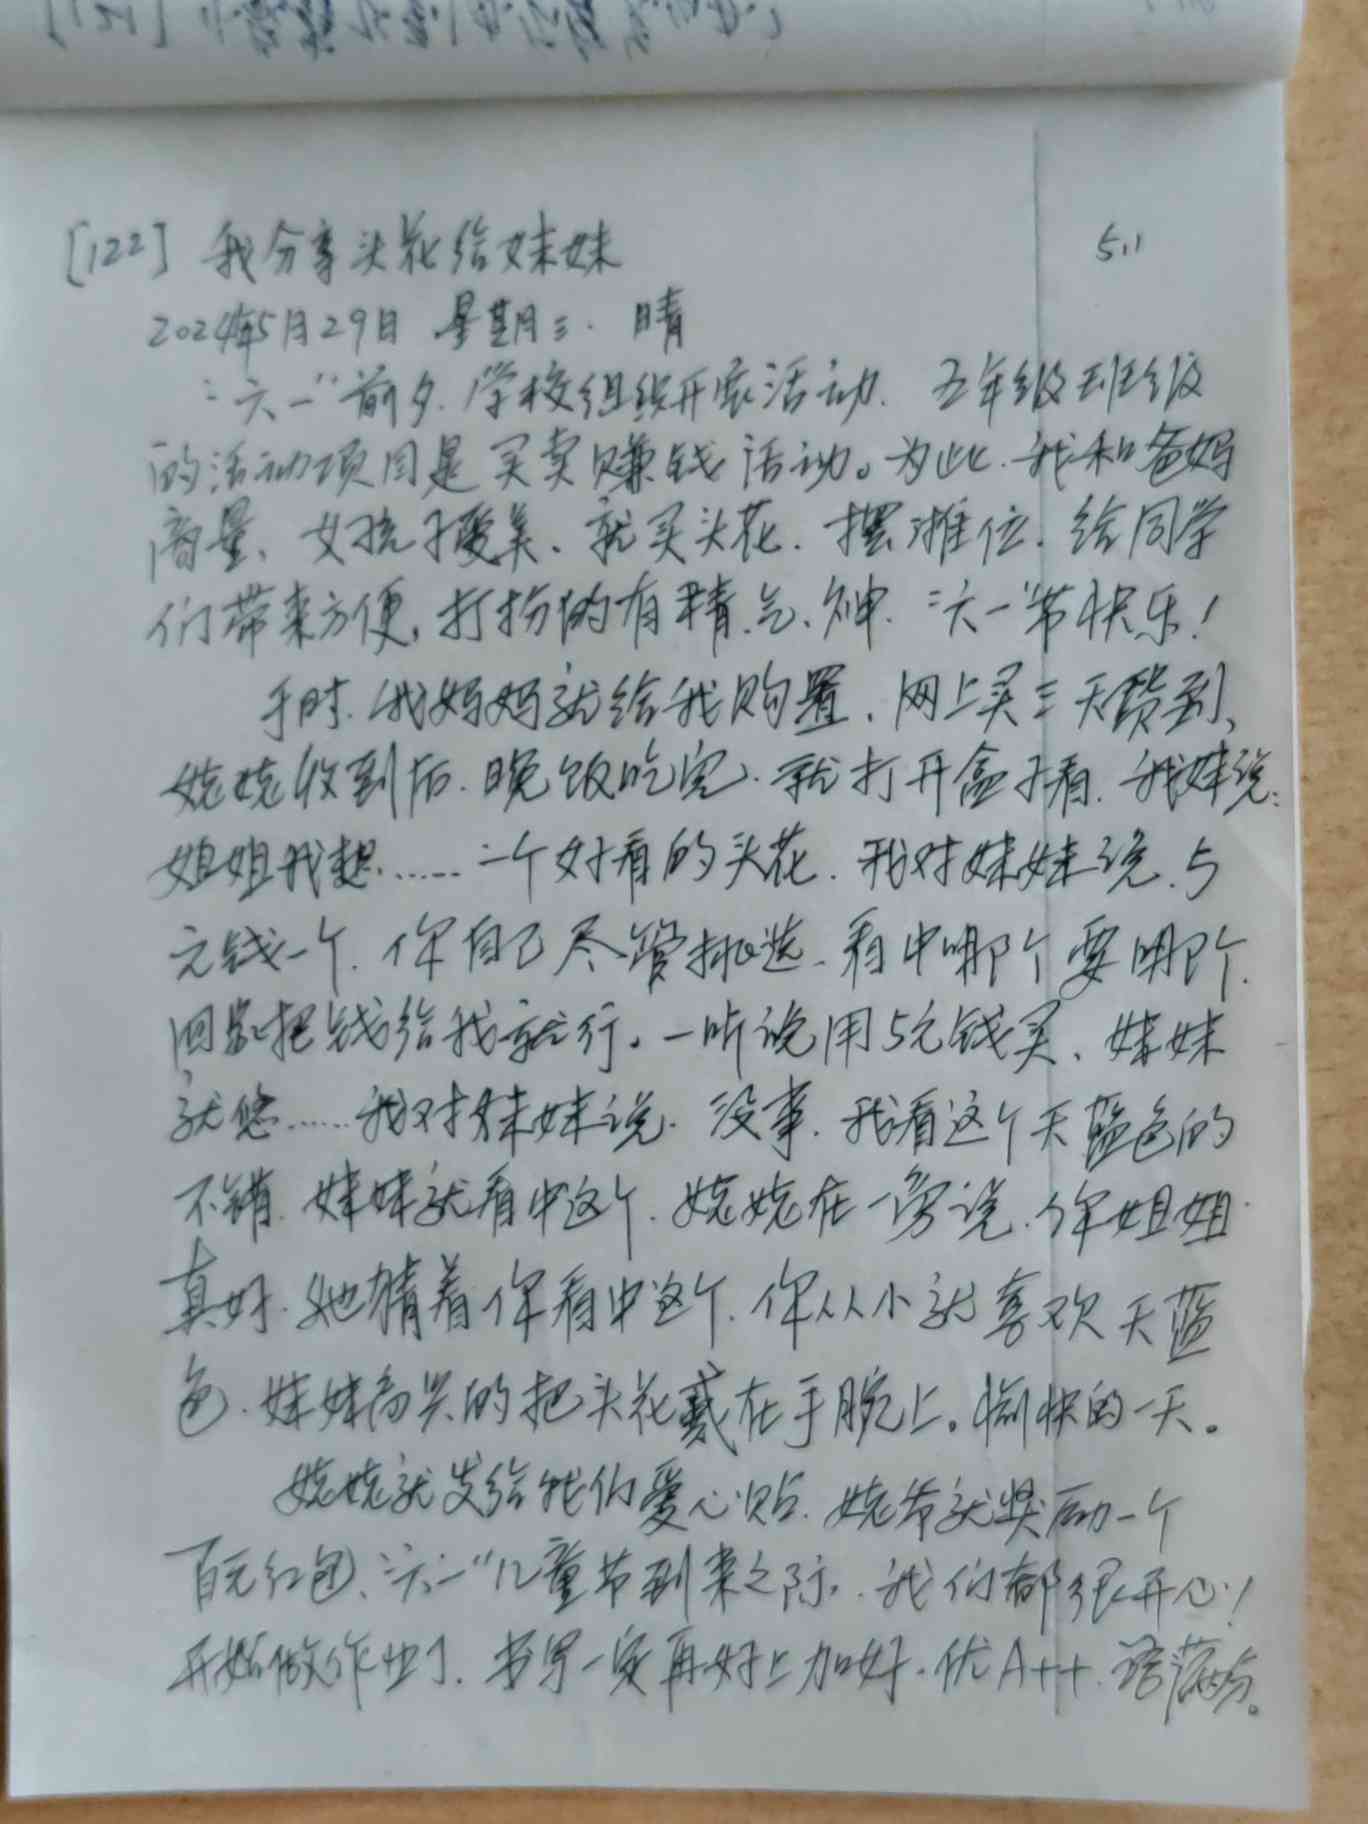 [122] 我分享头花给妹妹 5.11
2024年5月29日 星期三. 晴
“六一”前夕.学校组织开展活动. 五年级班级
的活动项目是买卖赚钱活动。为此.我和爸妈
商量、女孩子爱美、就买头花.摆摊位.给同学
们带来方便,打扮的有精、气、神.“六一”节快乐!
于时.我妈妈就给我购置、网上买三天货到、
姥姥收到后.晚饭吃完.就打开盒子看.我妹说:
姐姐我想……一个好看的头花.我对妹妹说.5
元钱一个.你自己尽管挑选.看中哪个要哪个.
回家把钱给我就行。一听说用5元钱买、妹妹
就……我对妹妹说.没事.我看这个天蓝色的
不错.妹妹就看中这个.姥姥在一旁说.你姐姐
真好.她猜着你看中这个.你从小就喜欢天蓝
色.妹妹高兴的把头花戴在手腕上。愉快的一天。
姥姥就发给我们爱心贴.姥爷就奖励一个
百元红包、“六一”儿童节到来之际.我们都很开心!
开始做作业了.书写一定再好上加好.优A++.语满分。